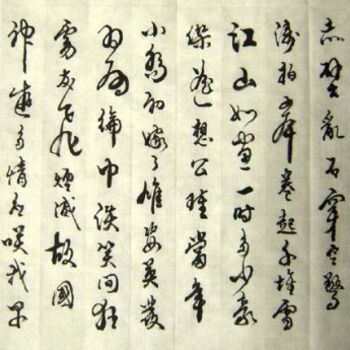 赤壁亂石穿空驚
濤拍岸卷起千堆雪
江山如畫一時多少豪
傑遙想公瑾當年
小喬初嫁了雄姿英發
羽扇綸巾談笑間狂
虜灰飛煙滅故國
神遊多情應笑我早